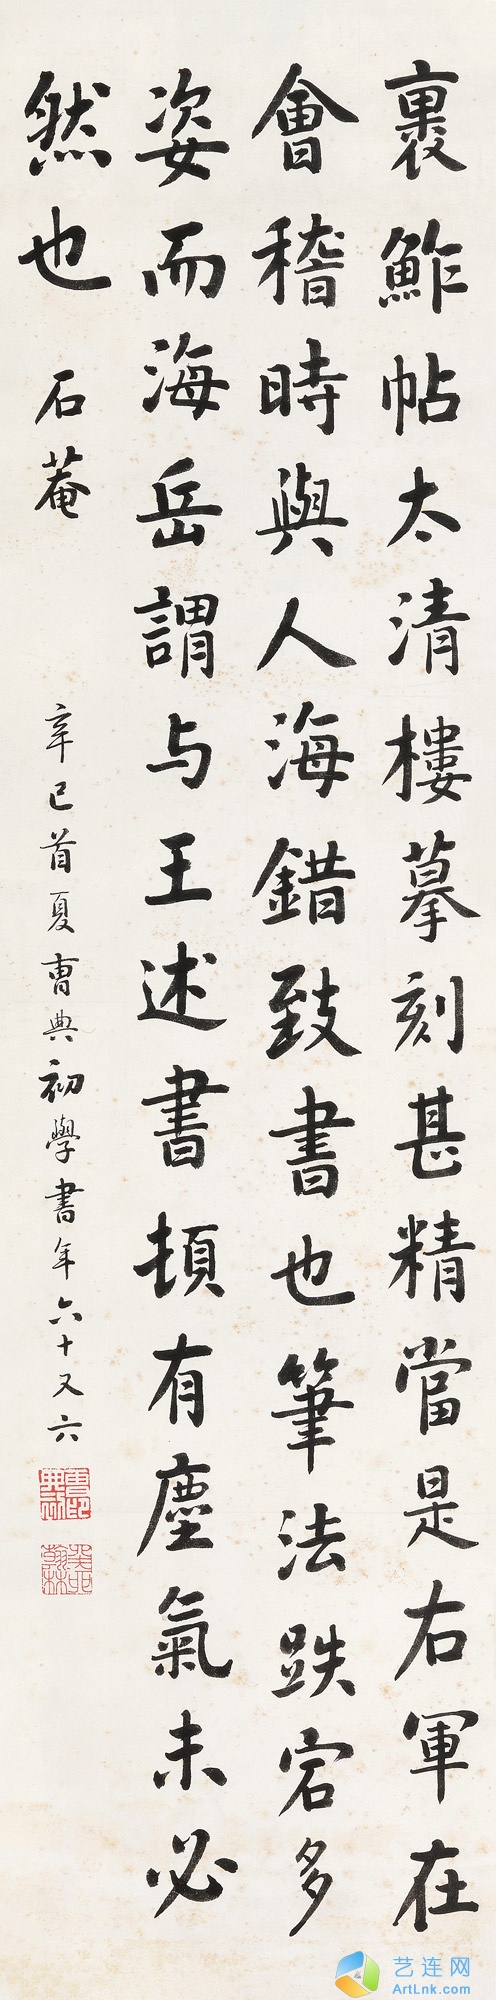 裹鮓帖太清樓摹刻甚精當是右軍在
會稽時與人海錯致書也筆法跌宕多
姿而海岳謂与王述書頓有塵氣未必
然也 石菴
辛巳首夏曹典初學書年六十又六
艺连网
ArtLnk.com